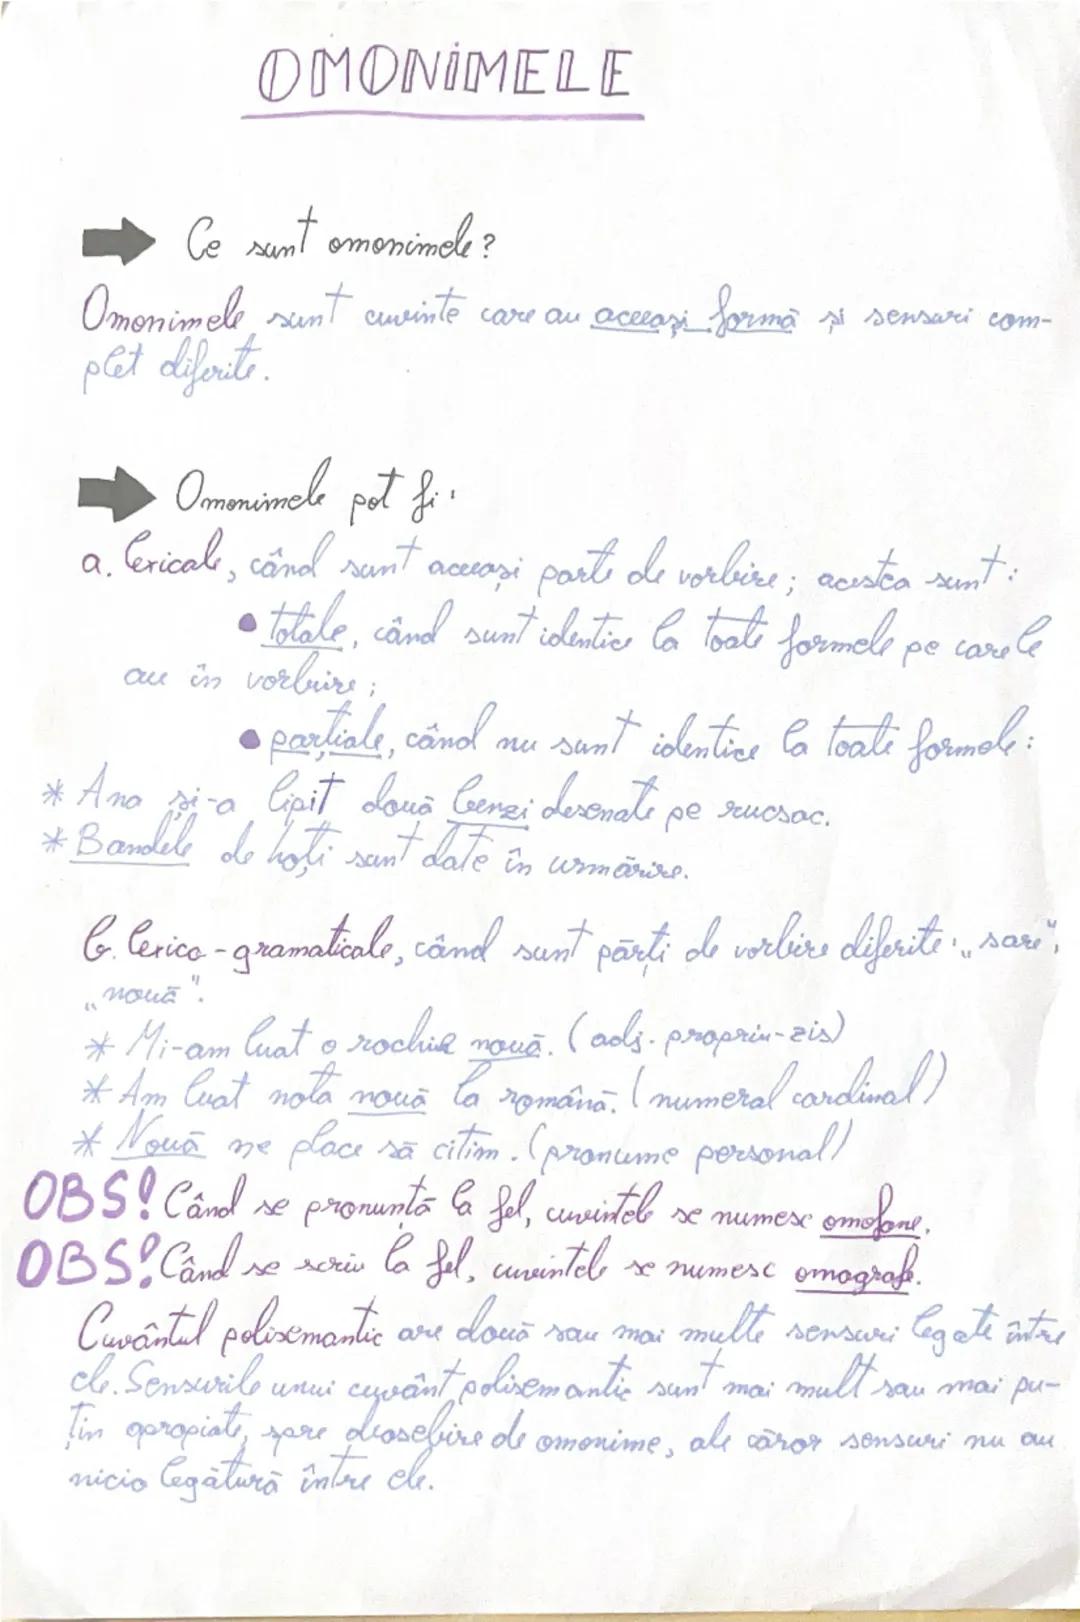 OMONIMELE
Ce sunt omonimele?
Omonimele sunt cuvinte care au aceeași formă și sensuri com-
plet diferite.
Omonimele pot fi:
a. lexicale, când sunt aceeași parte de vorbire; acestea sunt:
• totale, când sunt identice la toate formele pe care le
au în vorbire;
• parțiale, când nu sunt identice la toate formele:
* Ana și-a lipit două benzi desenate pe rucsac.
* Bandele de hoți sunt date în urmărire.
b. lexico-gramaticale, când sunt părți de vorbire diferite: „sare",
„nouă".
* Mi-am luat o rochie nouă. (adj. propriu-zis)
* Am luat nota nouă la română. (numeral cardinal)
* Nouă ne place să citim. (pronume personal)
OBS! Când se pronunță la fel, cuvintele se numesc omofone.
OBS! Când se scriu la fel, cuvintele se numesc omografe.
Cuvântul polisemantic are două sau mai multe sensuri legate între
ele. Sensurile unui cuvânt polisemantic sunt mai mult sau mai pu-
țin apropiate, spre deosebire de omonime, ale căror sensuri nu au
nicio legătură între ele.